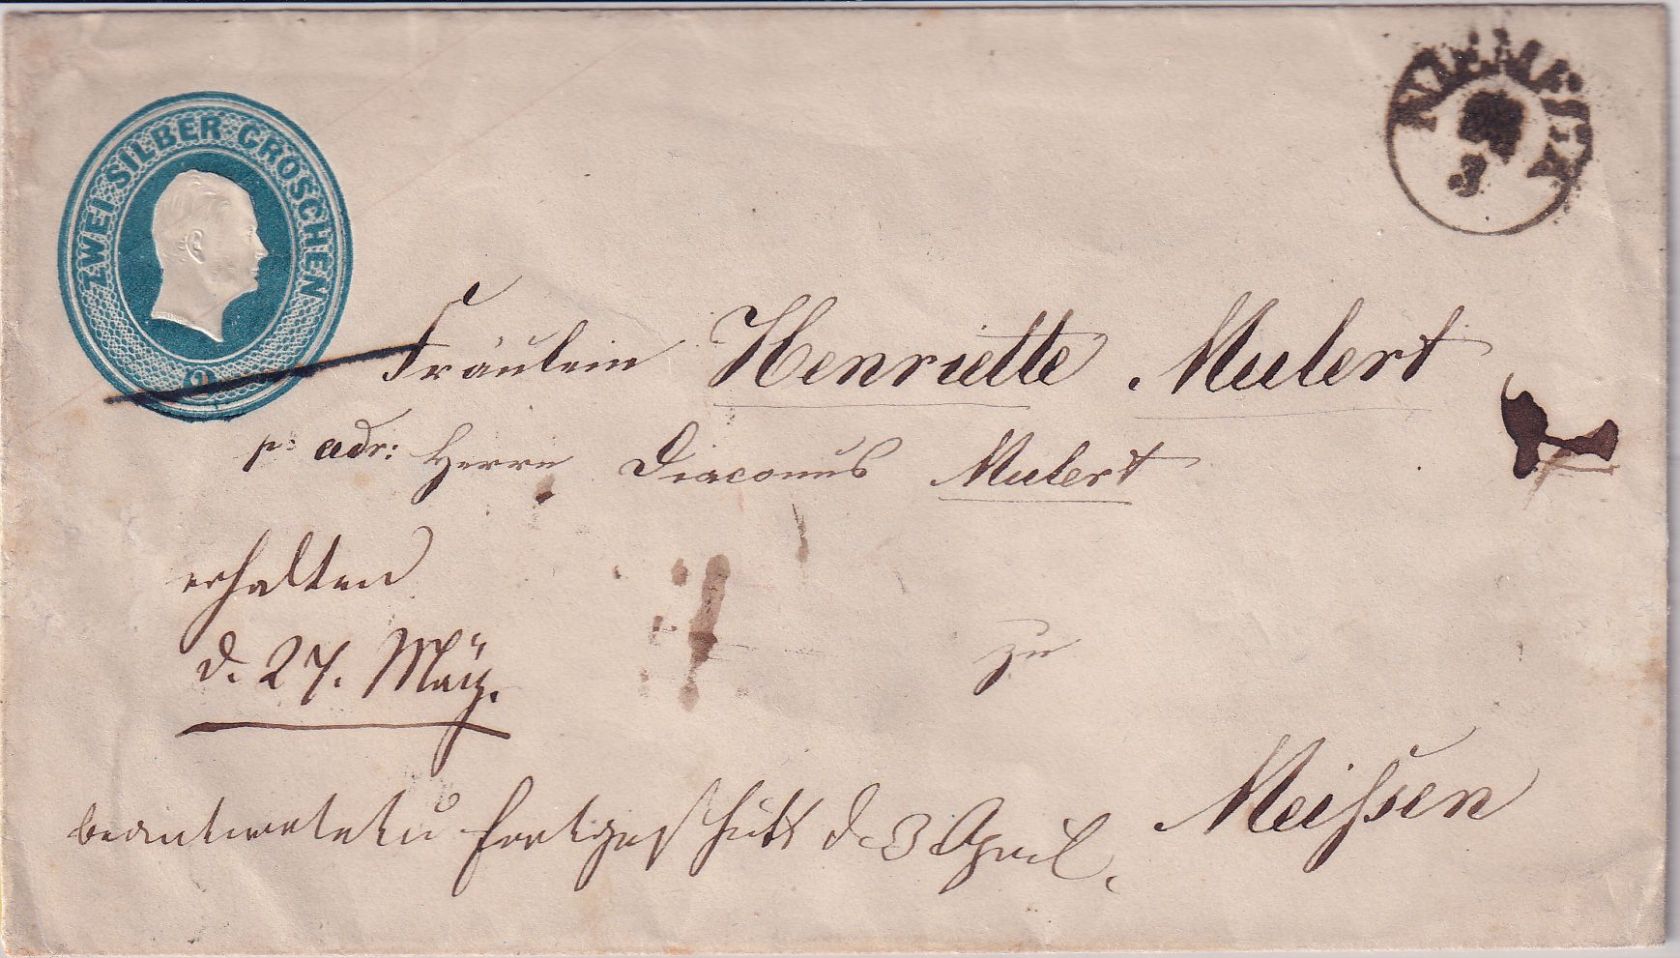 ZWEI SILBER GROSCHEN
2
NIEMEGK
3
Fräulein Henriette Mulert
p: adr: Herrn Diaconus Mulert
erhalten
d. 27. März.
zu
Meißsen
beantwortet u fortgeschickt d. 3 April.